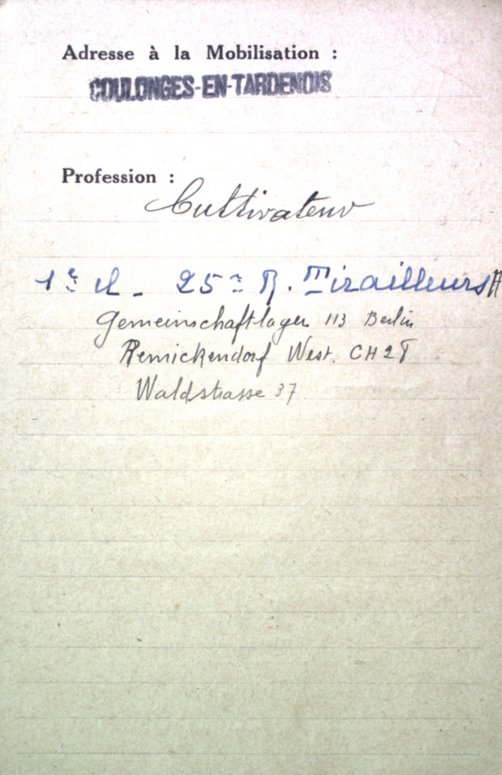 Adresse à la Mobilisation :
COULONGES-EN-TARDENOIS
Profession :
Cultivateur
1e cl - 25e R. Tirailleurs A
Gemeinschaftlager 113 Berlin
Remickendorf West. CH2T
Waldstrasse 37